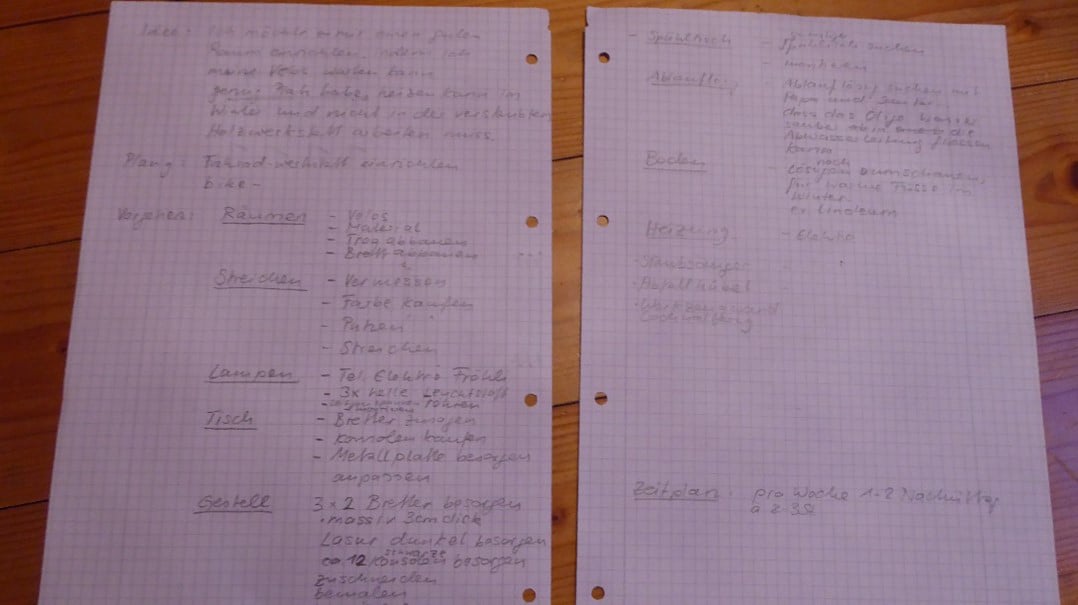 Idee: Ich möchte mir einen
Raum einrichten, indem ich
meine Velos warten kann
genug Platz habe, heizen kann im
Winter und nicht in der verstaubten
Holzwerkstatt arbeiten muss.
Plang: Fahrrad-werkstatt einrichten
bike -
Vorgehen: Räumen - Velos
- Material
- Trog abbauen
- Brett abbauen
Streichen - Vermessen
- Farbe kaufen
- Putzen
- Streichen
Lampen - Tel. Elektro Fröhli
- 3x helle Leuchtstoff
röhren
Tisch - Bretter zusägen
- Konsolen kaufen
- Metallplatte besorgen
anpassen
Gestell 3 x 2 Bretter besorgen
massiv 3cm dick
Lasur dunkel besorgen
schwarze
ca. 12 Konsolen besorgen
zuschneiden
bemalen
- Spühltisch - günstige
suchen
- montieren
- Ablauflösg suchen mit
Papa und
dass das
sauber in die
Abwasserleitung fliessen
kann
Boden noch
Lösungen anzuschauen,
für warme Füsse im
Winter
ev. Linoleum
Heizung - Elektro
- Staubsauger
- Abfallkübel
- Werkzeugwand
Lochwandung
Zeitplan: pro Woche 1-2 Nachmittag
à 2-3St